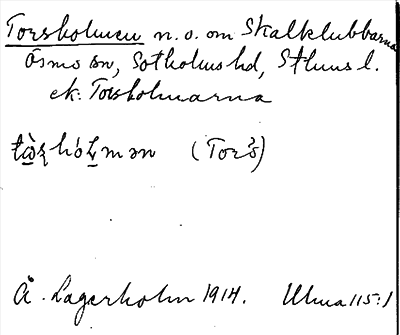 Torsholmen n. o. om Skalklubbarna
Ösmo sn, Sotholms hd, Sthms l.
ek: Torsholmarna
(Torö)
Å. Lagerholm 1914. Ulma 115:1